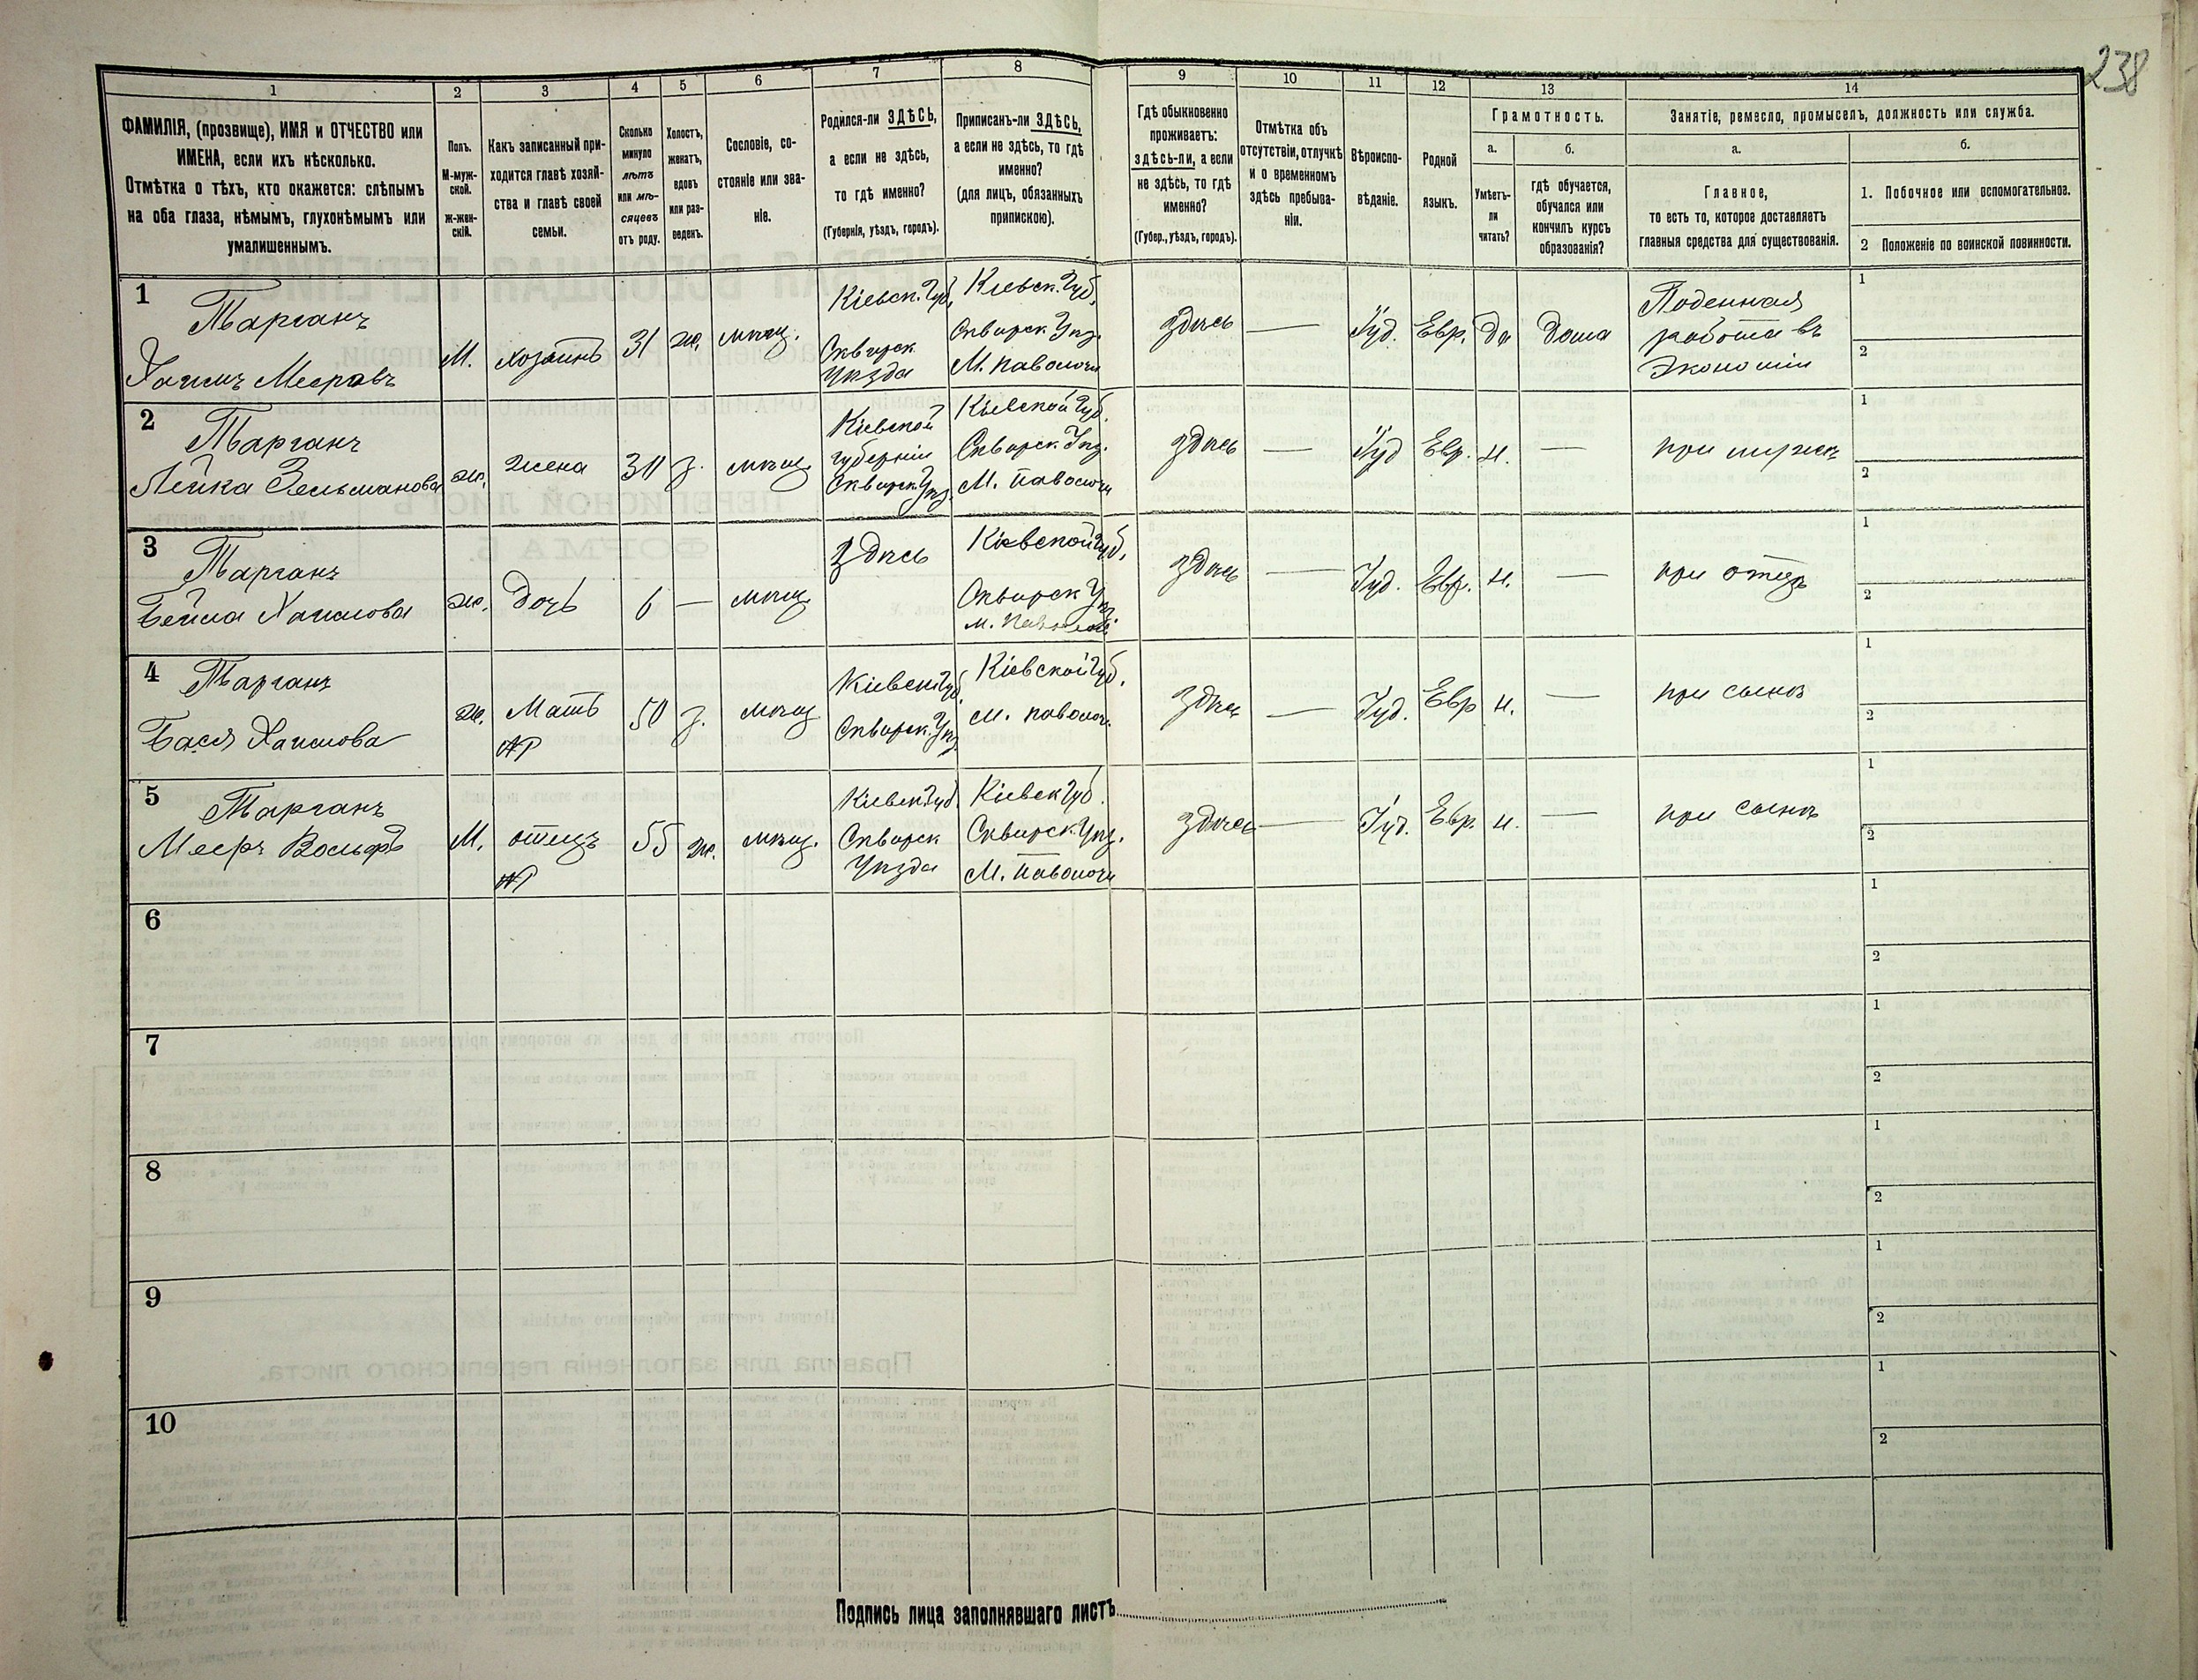 238
1
2
3
4
5
6
7
8
9
10
11
12
13
14
ФАМИЛІЯ, (прозвище), ИМЯ и ОТЧЕСТВО или
ИМЕНА, если ихъ нѣсколько.
Отмѣтка о тѣхъ, кто окажется: слѣпымъ
на оба глаза, нѣмымъ, глухонѣмымъ или
умалишеннымъ.
Полъ.
М-муж-
ской.
ж-жен-
скій.
Какъ записанный при-
ходится главѣ хозяй-
ства и главѣ своей
семьи.
Сколько
минуло
лѣтъ
или мѣ-
сяцевъ
отъ роду.
Холостъ,
женатъ,
вдовъ
или раз-
веденъ.
Сословіе, со-
стояніе или зва-
ніе.
Родился-ли ЗДѢСЬ,
а если не здѣсь,
то гдѣ именно?
(Губернія, уѣздъ, городъ).
Приписанъ-ли ЗДѢСЬ,
а если не здѣсь, то гдѣ
именно?
(для лицъ, обязанныхъ
припискою).
Гдѣ обыкновенно
проживаетъ:
здѣсь-ли, а если
не здѣсь, то гдѣ
именно?
(Губер., уѣздъ, городъ).
Отмѣтка объ
отсутствіи, отлучкѣ
и о временномъ
здѣсь пребыва-
ніи.
Вѣроиспо-
вѣданіе.
Родной
языкъ.
Грамотность.
а.
Умѣетъ-
ли
читать?
б.
гдѣ обучается,
обучался или
кончилъ курсъ
образованія?
Занятіе, ремесло, промыселъ, должность или служба.
а.
Главное,
то есть то, которое доставляетъ
главныя средства для существованія.
б.
1. Побочное или вспомогательное.
2 Положеніе по воинской повинности.
1
Тарганъ
Хаимъ Мееровъ
М.
хозяинъ
31
ж.
мѣщ.
Кіевск. Губ.
Сквирск
Уѣзда
Кіевск. Губ.
Сквирск Уѣз.
М. Паволочи
здѣсь
—
Іуд.
Евр.
Да
Дома
Поденная
работа въ
Экономіи
1
2
2
Тарганъ
Лейка Зельманова
ж.
жена
з.
мѣщ.
Кіевской
губерніи
Сквирск. Уѣз.
Кіевской Губ.
Сквирск. Уѣз.
М. Паволочи
здѣсь
—
Іуд
Евр.
н.
—
при мужѣ
1
2
3
Тарганъ
Бейла Хаимова
ж.
Дочь
6
—
мѣщ.
здѣсь
Кіевской Губ.
Сквирск Уѣз.
м. Паволочи
здѣсь
—
Іуд.
Евр.
н.
—
при отцѣ
1
2
4
Тарганъ
Бася Хаимова
ж.
Мать
50
з.
мѣщ
Кіевск. Губ.
Сквирск. Уѣз.
Кіевской Губ.
М. Паволоч.
здѣсь
—
Іуд.
Евр
н.
—
при сынѣ
1
2
5
Тарганъ
Мееръ Вольфъ
М.
отецъ
55
ж.
мѣщ.
Кіевск. Губ.
Сквирск
Уѣзда
Кіевск Губ.
Сквирск Уѣз.
М. Паволочи
здѣсь
—
Іуд.
Евр.
н.
—
при сынѣ
1
2
6
1
2
7
1
2
8
1
2
9
1
2
10
1
2
Подпись лица заполнявшаго листъ